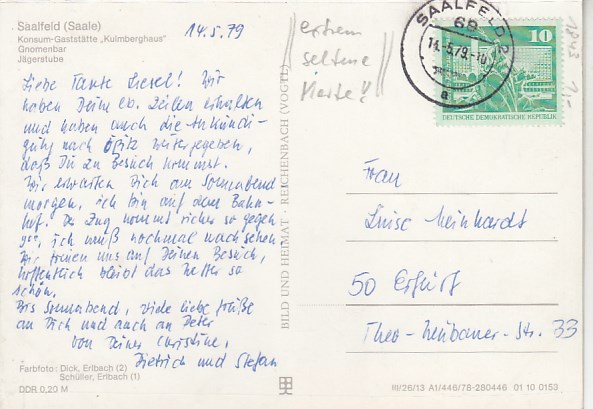 Saalfeld (Saale)
Konsum-Gaststätte „Kulmberghaus"
Gnomenbar
Jägerstube
14.5.79
Liebe Tante Liesel! Wir
haben Deine lb. Zeilen erhalten
und haben auch die Ankündi-
gung nach Opitz weitergegeben,
daß Du zu Besuch kommst.
Wir erwarten Dich am Sonnabend
morgen, ich bin auf dem Bahn-
hof. Der Zug kommt sicher so gegen
9⁰⁰, ich muß nochmal nachsehen.
Wir freuen uns auf Deinen Besuch,
hoffentlich bleibt das Wetter so
schön.
Bis Sonnabend, viele liebe Grüße
an Dich und auch an Peter
von Deiner Christine,
Dietrich und Stefan
Farbfoto: Dick, Erlbach (2)
Schüller, Erlbach (1)
DDR 0,20 M
BILD UND HEIMAT · REICHENBACH (VOGTL)
extrem
seltene
Karte!!
SAALFELD 2
68
14.-5.79.-10
a
10
DEUTSCHE DEMOKRATISCHE REPUBLIK
1843
Frau
Luise Meinhardt
50 Erfurt
Theo-Neubauer-Str. 33
III/26/13 A1/446/78-280446 01 10 0153